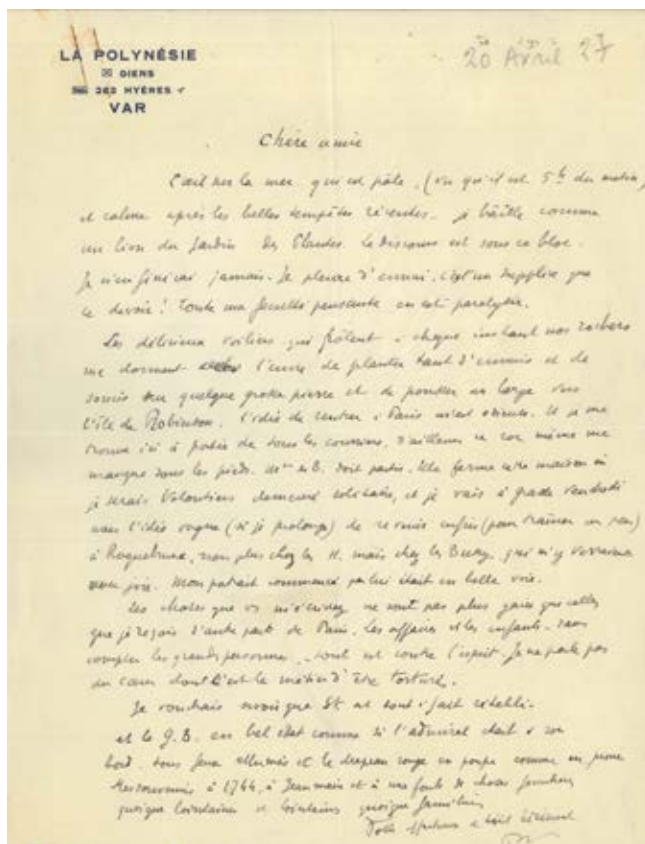 LA POLYNÉSIE
GIENS
HYÈRES
VAR
20 Avril 27
Chère amie
L'œil sur la mer qui est pâle, (vu qu'il est 5h du matin)
et calme après les belles tempêtes récentes. je bâille comme
un lion du Jardin des Plantes. Le discours est sous ce bloc.
Je n'en finirai jamais. Je pleure d'ennui. c'est un supplice que
ce devoir! Toute ma faculté pensante en est paralysée.
Les délicieux voiliers qui frôlent à chaque instant nos rochers
me donnent l'envie de planter tant d'ennuis et de
soucis sur quelque grosse pierre et de pousser au large vers
l'île de Robinson. L'idée de rentrer à Paris m'est
trouve ici à portée de tous les D'ailleurs ce roc même me
manque sous les pieds. doit partir. Elle ferme cette maison où
je serais volontiers demeuré solitaire, et je vais à vendredi
avec l'idée vague (si je prolonge) de revenir enfin (pour traîner un peu)
à Roquebrune, non plus chez les H. mais chez les Bussy, qui m'y verraient
avec joie. Mon portrait commencé par lui était en belle voie.
Les choses que vs m'écrivez ne sont pas plus gaies que celles
que je reçois d'autre part de Paris. Les affaires et les enfants. sans
compter les grandes personnes, tout est contre l'esprit. Je ne parle pas
du cœur dont c'est le métier d'être torturé.
Je voudrais savoir que St. est tout à fait rétabli.
et le G.B. en bel état comme si l'admiral était à son
bord. tous feux allumés et le drapeau rouge en poupe comme en proue
à 1744, à Jeanmain et à une foule de choses familières
quoique lointaines et lointains quoique familiers